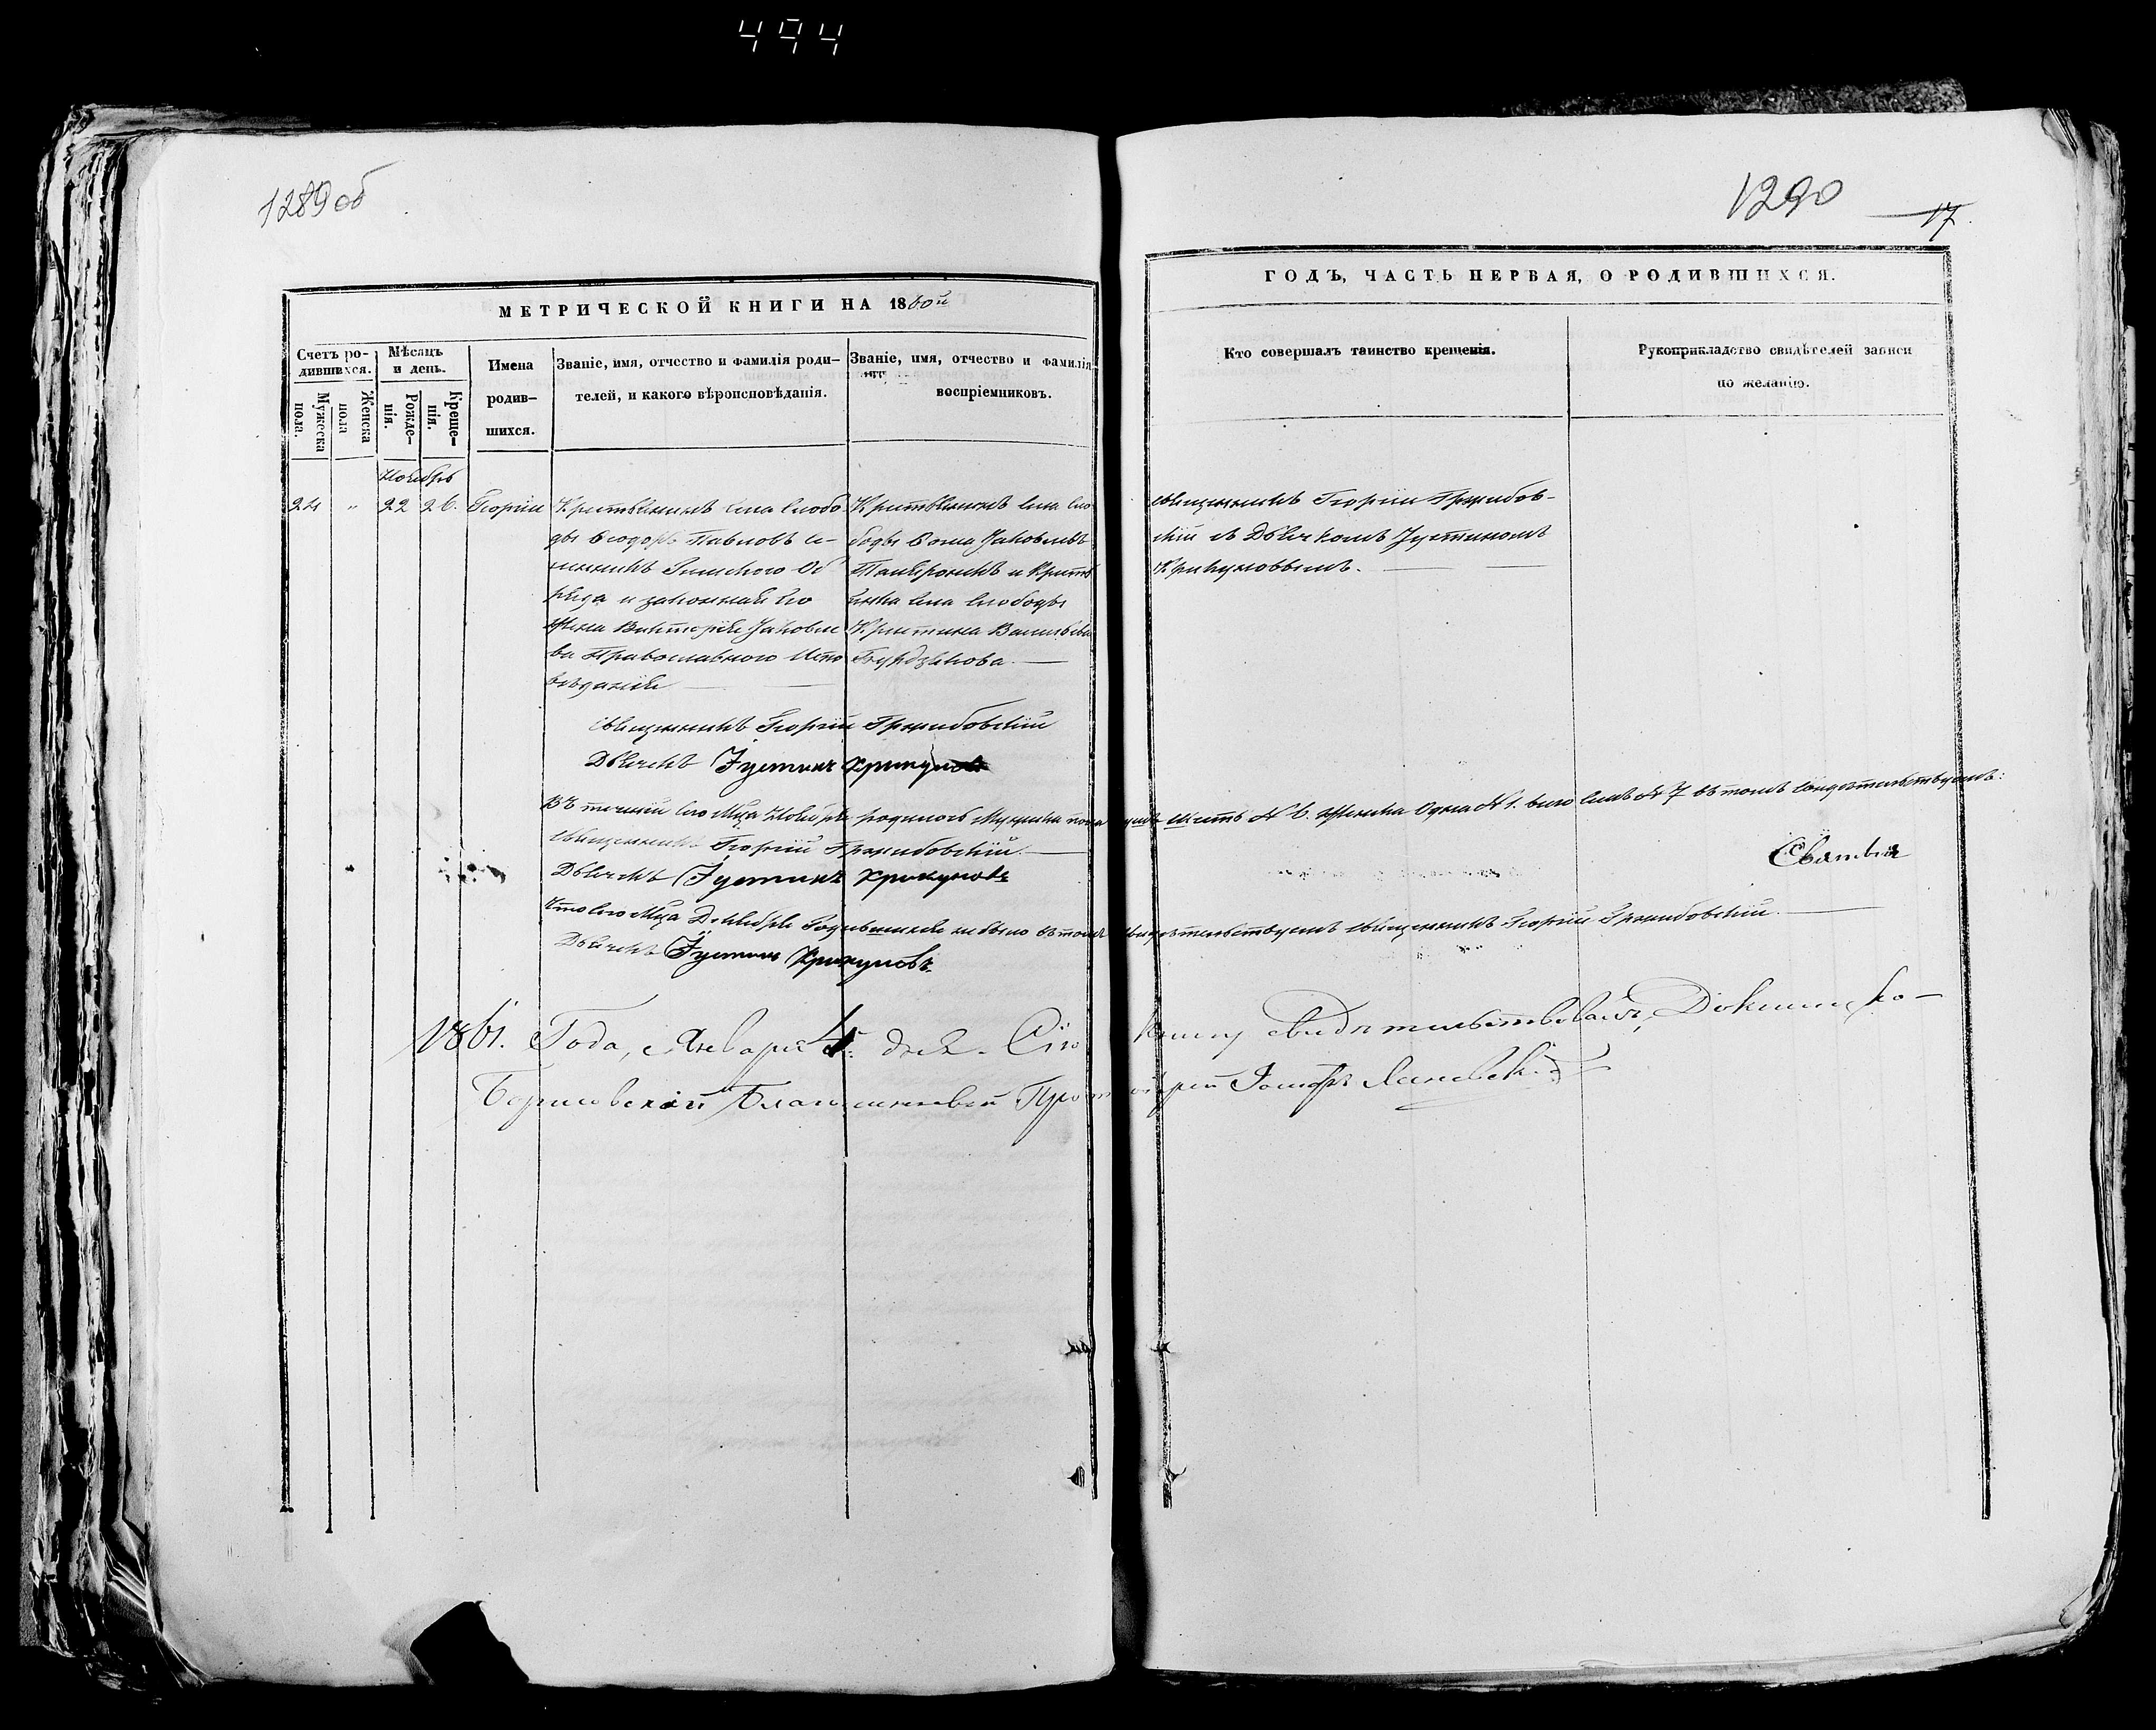 494
1289 об
1290
17
МЕТРИЧЕСКОЙ КНИГИ НА 1860й
ГОДЪ, ЧАСТЬ ПЕРВАЯ, О РОДИВШИХСЯ.
Счетъ ро-
дившихся.
Мужеска
пола.
Женска
пола
Мѣсяцъ
и день.
Рожде-
нія.
Креще-
нія.
Имена
родив-
шихся.
Званіе, имя, отчество и фамилія роди-
телей, и какого вѣроисповѣданія.
Званіе, имя, отчество и фамилія
воспріемниковъ.
Кто совершалъ таинство крещенія.
Рукоприкладство свидѣтелей записи
по желанію.
Ноябрь
24 " 22 26. Георгій
Крестьянинъ села Слобо
ды Ѳеодоръ Павловъ
Римского Об
ряда и законная его
жена Викторія Яковле
ва Православного Испо
вѣданія
Крестьянинъ села Сло
боды Ѳома Яковлевъ
и Кресть
янка села Слободы
Кристина Васильева
Священникъ Георгій Гржибов-
скій съ Дьячкомъ Іустиномъ
Крикуновымъ.
Священникъ Георгій Гржибовскій
Дьячекъ Іустинъ Крикуновъ
Въ теченіи сего Мца Ноября родилось Мужска пола душъ шесть № 6. Женска Одна № 1. всего семь № 7 въ томъ свидѣтельствуемъ:
Священникъ Георгій Гржибовскій.
Дьячекъ Іустинъ Крикуновъ
Что сего Мца Декабря Родившихся не было въ томъ свидѣтельствуемъ Священникъ Георгій Гржибовскій.
Дьячекъ Іустинъ Крикуновъ.
1861. Года, Января 4. дня. Сію Книгу свидѣтельствовалъ, Докшицко-
Борисовскій Благочинный Протоіерей